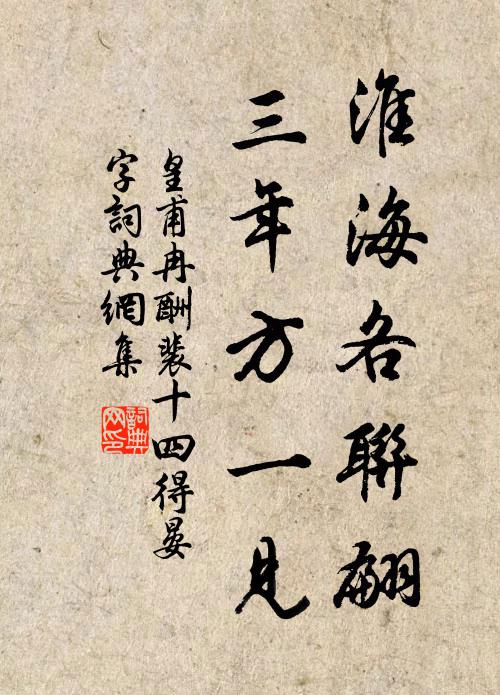 淮海各聯翩
三年方一見
皇甫冉酬裴十四得晏
字詞典網集
詞典網印